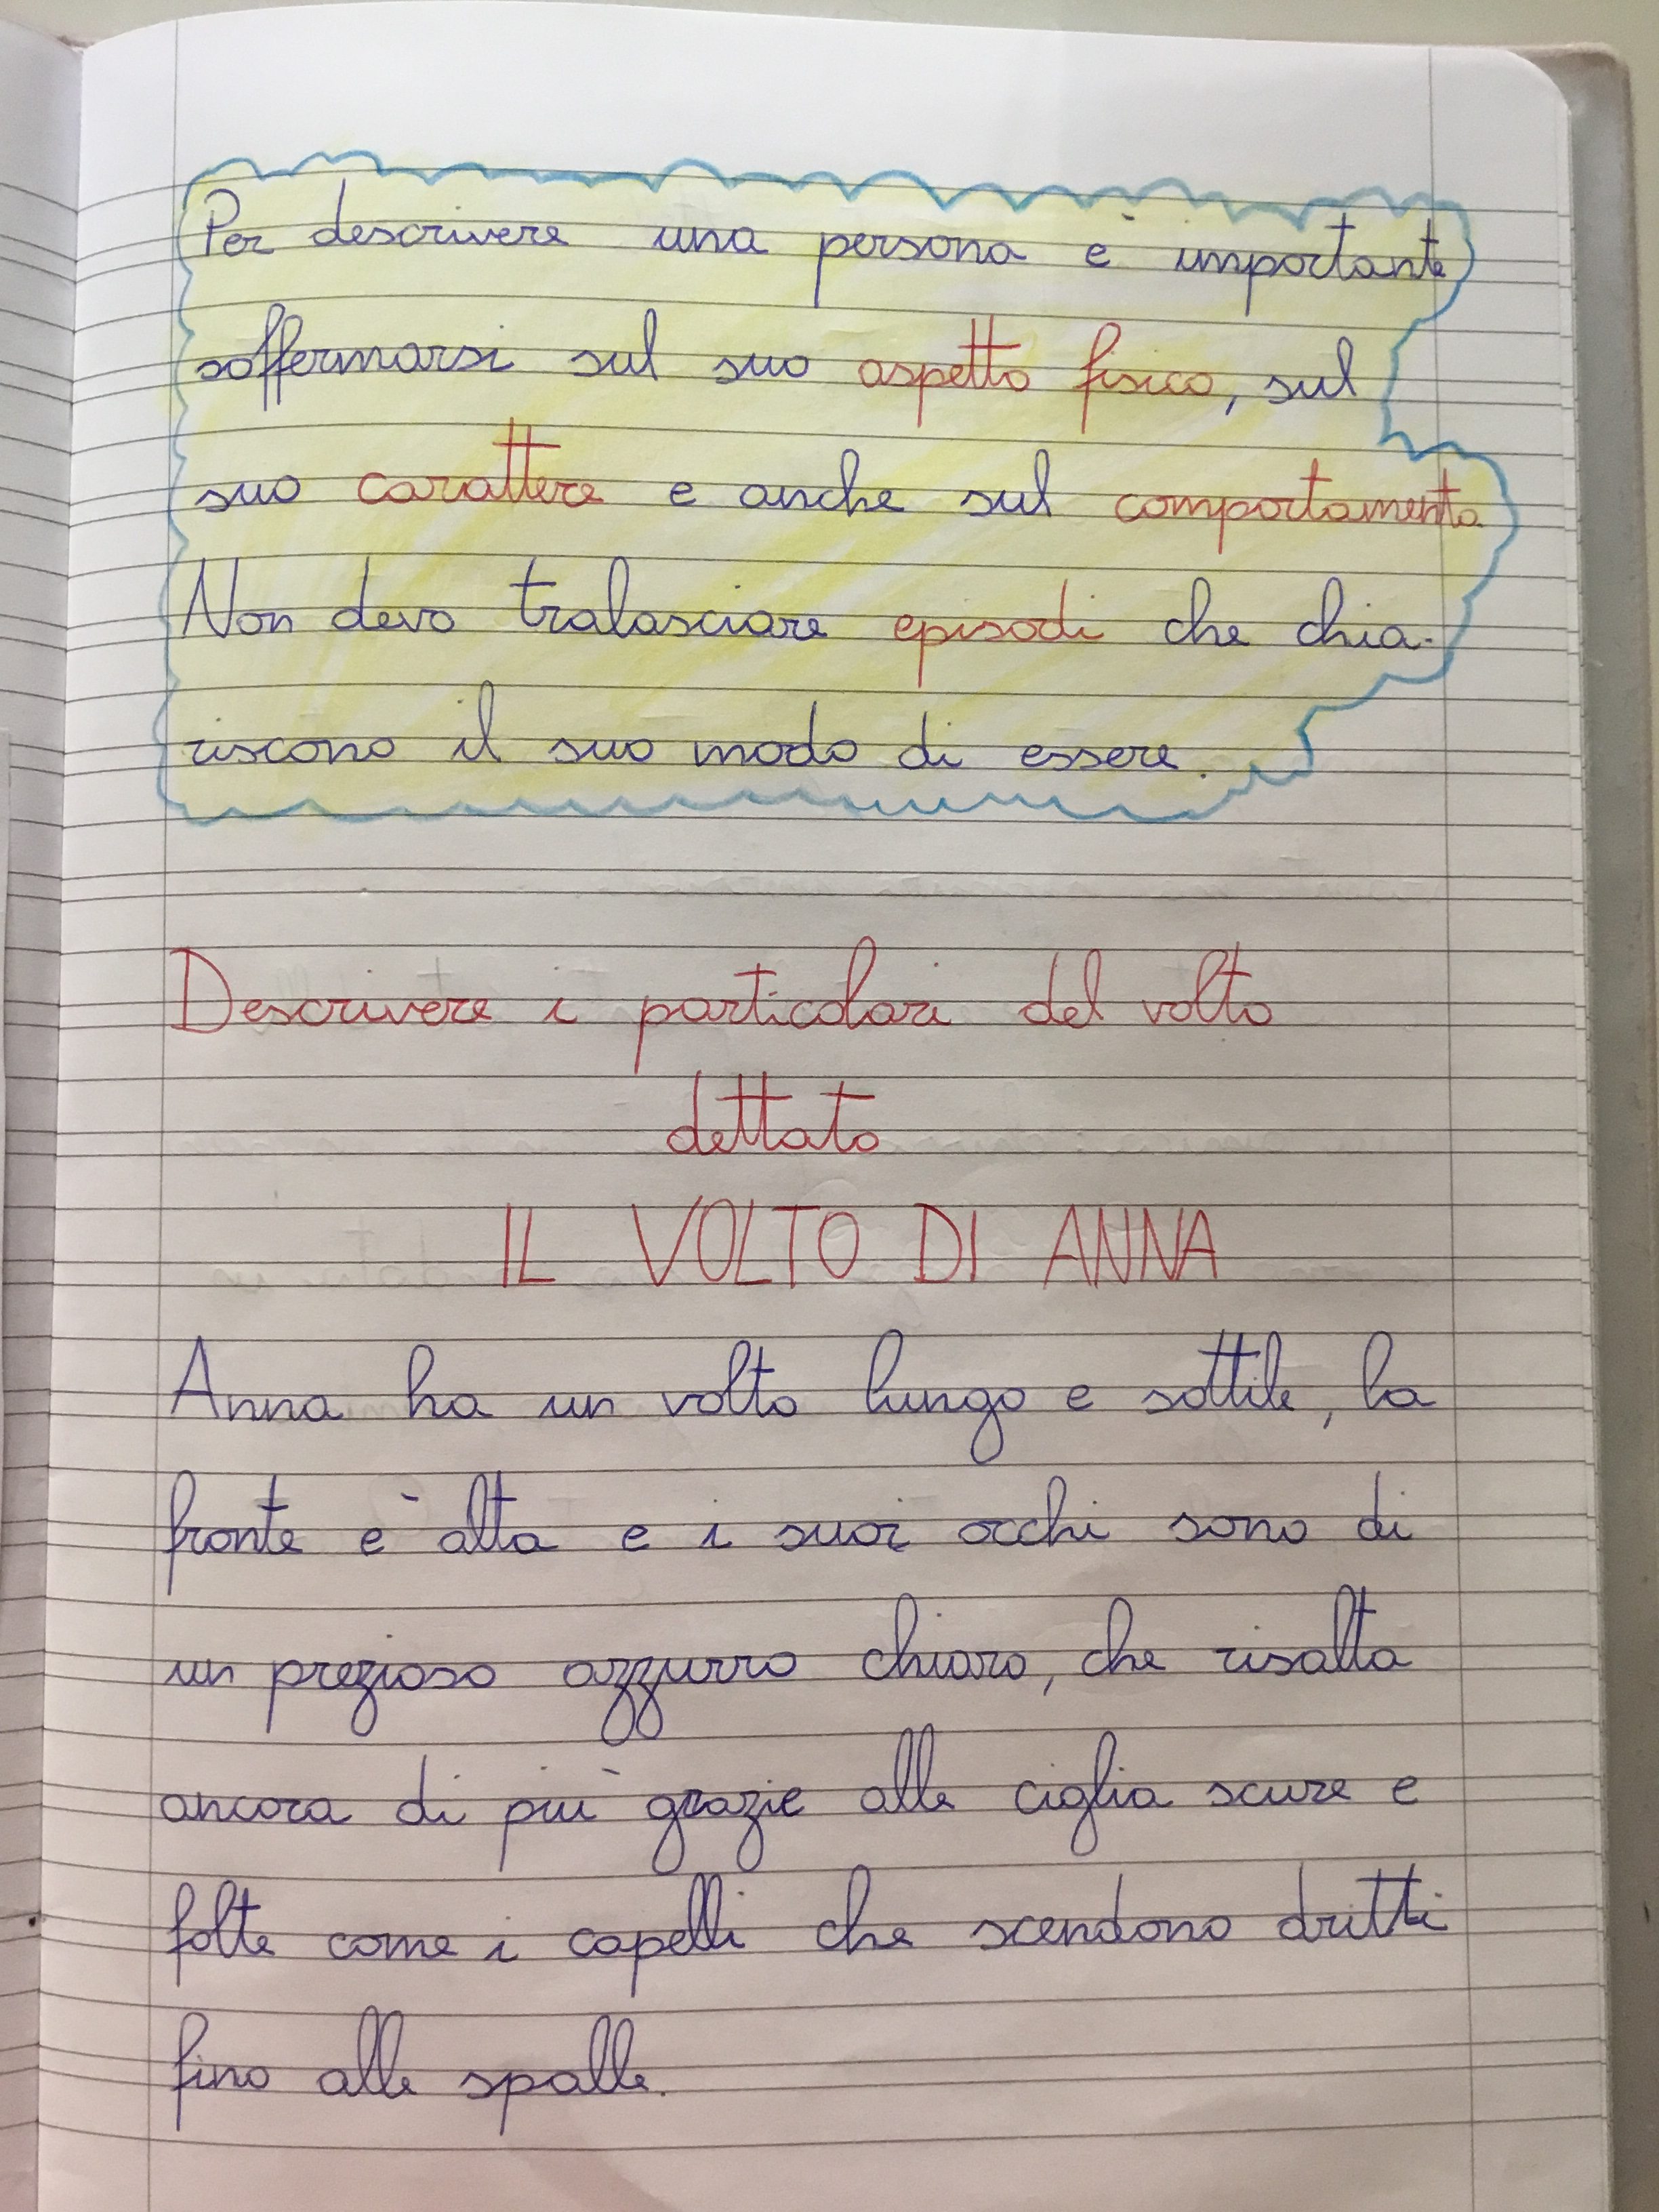 Per descrivere una persona è importante
soffermarsi sul suo aspetto fisico, sul
suo carattere e anche sul comportamento
Non devo tralasciare episodi che chia-
riscono il suo modo di essere.
Descrivere i particolari del volto
dettato
IL VOLTO DI ANNA
Anna ha un volto lungo e sottile, la
fronte è alta e i suoi occhi sono di
un prezioso azzurro chiaro, che risalta
ancora di più grazie alle ciglia scure e
folte come i capelli che scendono dritti
fino alle spalle.